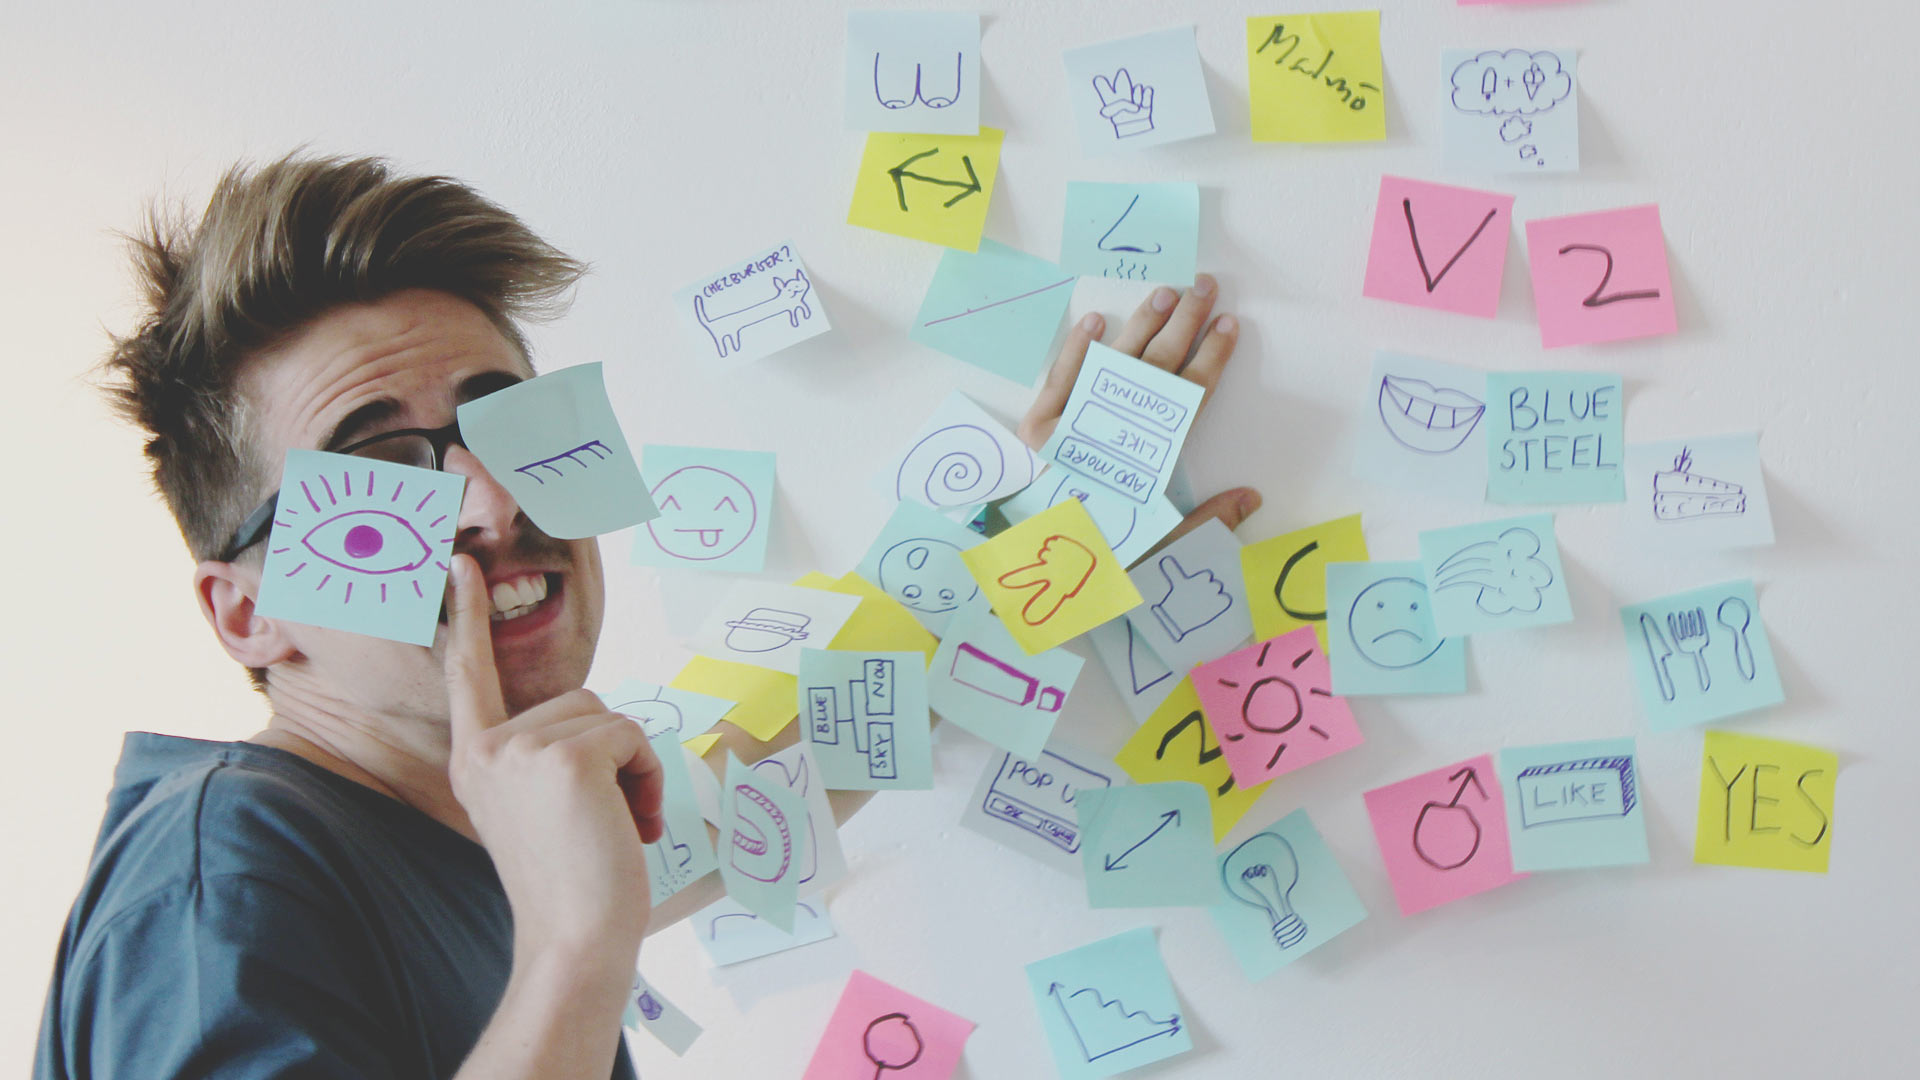 Malmö
V
2
CHEZBURGER?
CONTINUE
LIKE
ADD MORE
BLUE
STEEL
BLUE
NOW
SKY
POP U
LIKE
YES